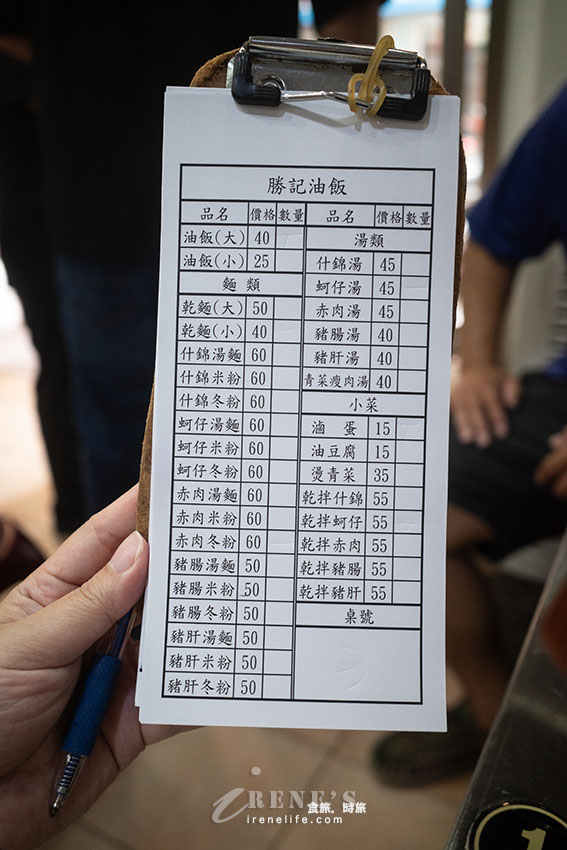 勝記油飯
品名 價格 數量
油飯(大) 40
油飯(小) 25
麵類
乾麵(大) 50
乾麵(小) 40
什錦湯麵 60
什錦米粉 60
什錦冬粉 60
蚵仔湯麵 60
蚵仔米粉 60
蚵仔冬粉 60
赤肉湯麵 60
赤肉米粉 60
赤肉冬粉 60
豬腸湯麵 50
豬腸米粉 50
豬腸冬粉 50
豬肝湯麵 50
豬肝米粉 50
豬肝冬粉 50
品名 價格 數量
湯類
什錦湯 45
蚵仔湯 45
赤肉湯 45
豬腸湯 40
豬肝湯 40
青菜瘦肉湯 40
小菜
滷蛋 15
油豆腐 15
燙青菜 35
乾拌什錦 55
乾拌蚵仔 55
乾拌赤肉 55
乾拌豬腸 55
乾拌豬肝 55
桌號
iRENE'S 食旅。時旅
irenelife.com
1